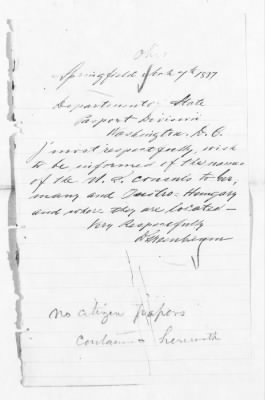 Oh.
Springfield 7th 1897
Department State
Pasport Division
Washington. D. C.
I most respectfully, wish
to be informed of the names
of the U. S. consuls to Ger,
many and Austro- Hungary
and where they are located-
Very Respectfully
no citizen papers
contained herewith